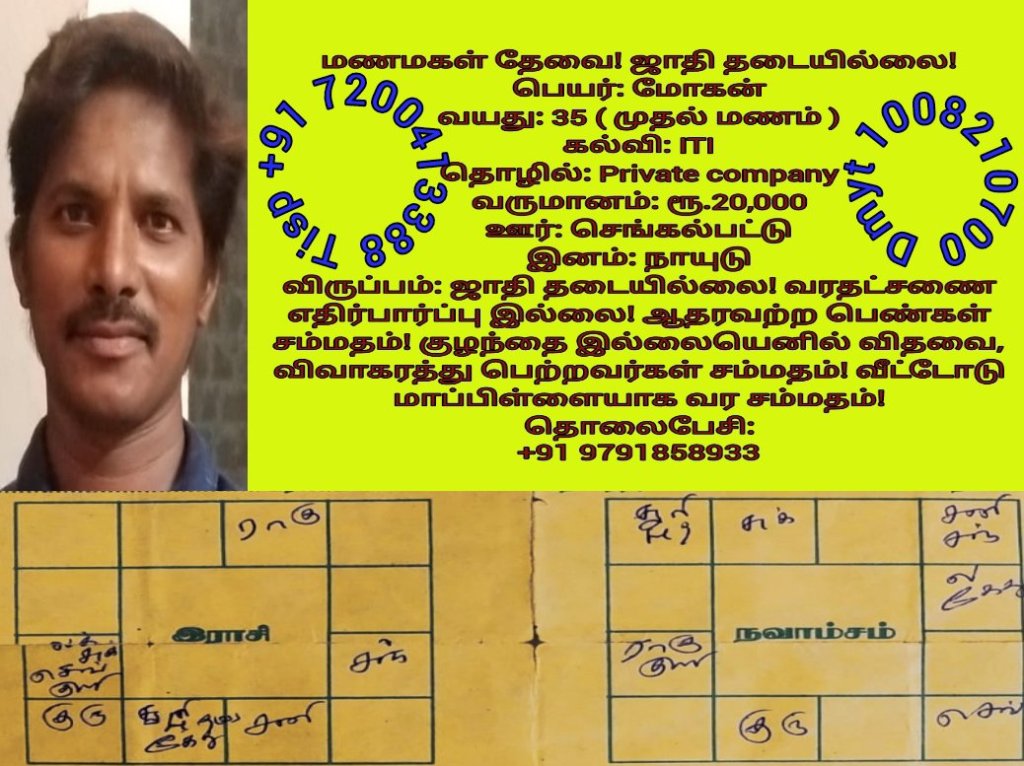 மணமகள் தேவை! ஜாதி தடையில்லை!
பெயர்: மோகன்
வயது: 35 ( முதல் மணம் )
கல்வி: ITI
தொழில்: Private company
வருமானம்: ரூ.20,000
ஊர்: செங்கல்பட்டு
இனம்: நாயுடு
விருப்பம்: ஜாதி தடையில்லை! வரதட்சணை
எதிர்பார்ப்பு இல்லை! ஆதரவற்ற பெண்கள்
சம்மதம்! குழந்தை இல்லையெனில் விதவை,
விவாகரத்து பெற்றவர்கள் சம்மதம்! வீட்டோடு
மாப்பிள்ளையாக வர சம்மதம்!
தொலைபேசி:
+91 9791858933
Tisp +91 7200413388
Dmyt 1008210700
ராகு
இராசி
சந்
செவ்
குரு
கேது
சனி
சுக்
சனி
சந்
கேது
நவாம்சம்
ராகு
குரு
செவ்